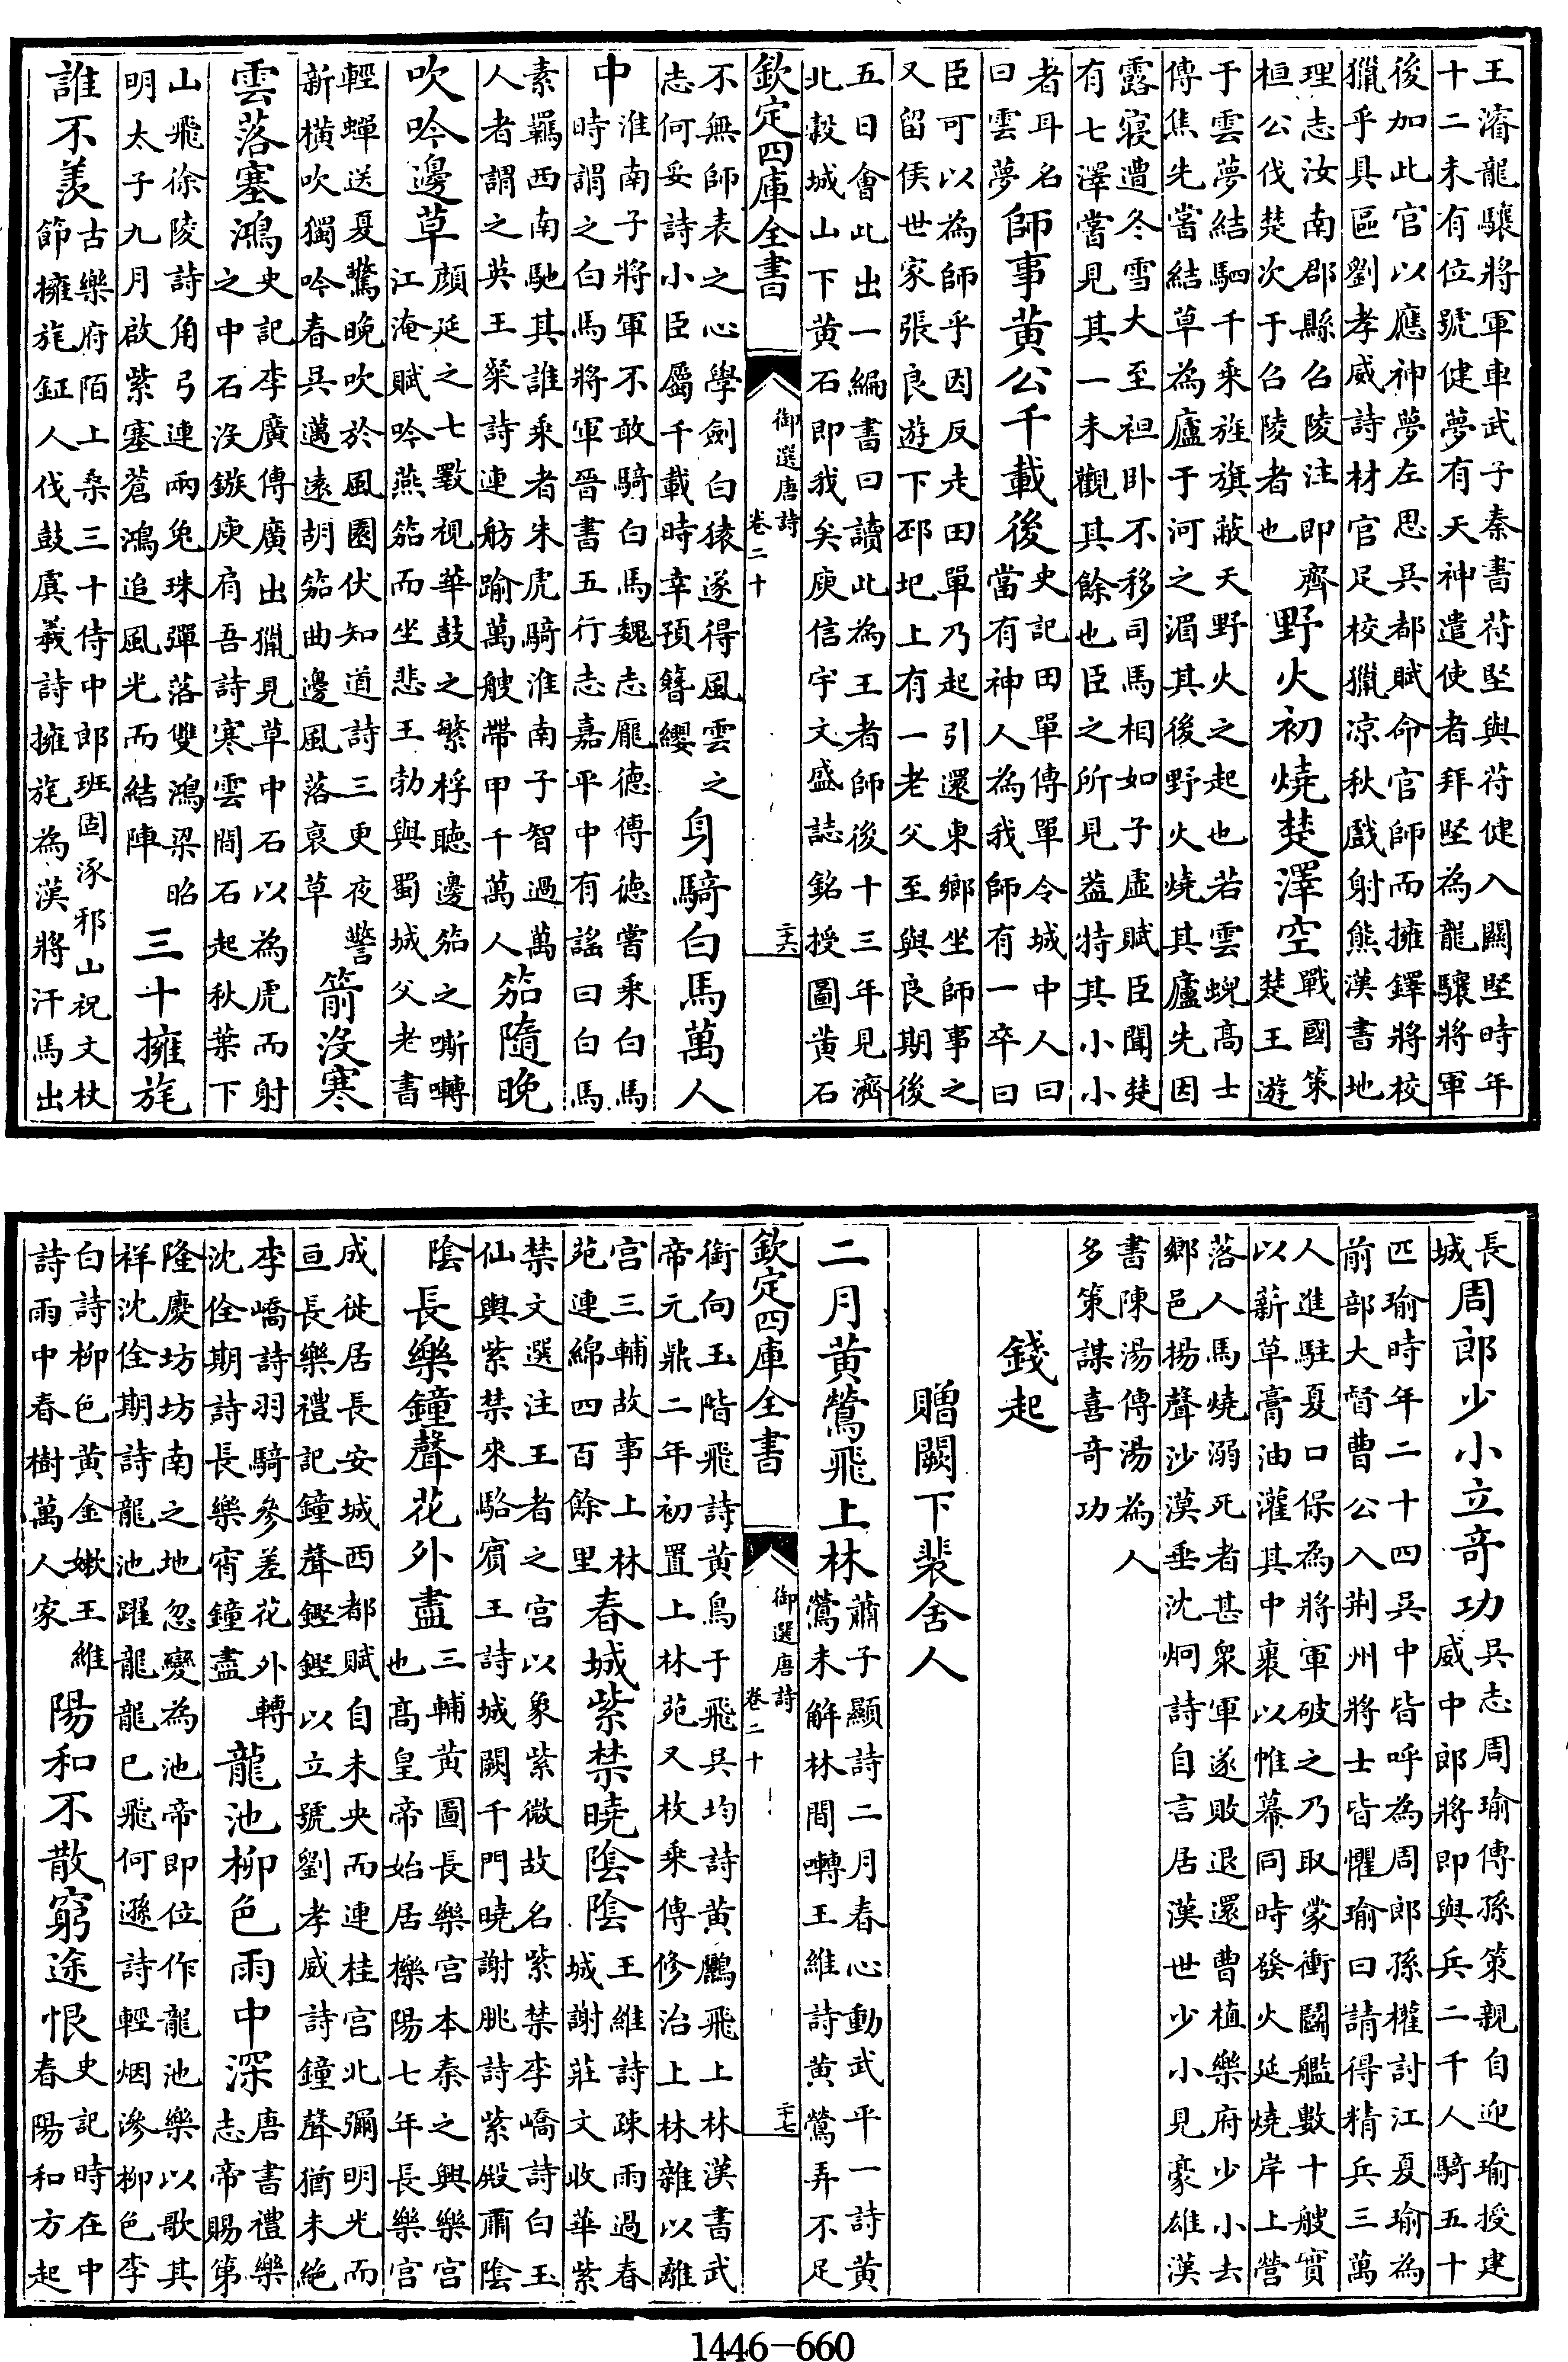 王濬龍驤將軍車武子秦書苻堅與苻健入關堅時年
十二未有位號健夢有天神遣使者拜堅為龍驤將軍
後加此官以應神夢左思吳都賦命官師而擁鐸將校
獵乎具區劉孝威詩材官足校獵凉秋戲射熊漢書地
理志汝南郡縣召陵注即齊
桓公伐楚次于召陵者也
野火初燒楚澤空
戰國策
楚王遊
于雲夢結駟千乘旌旗蔽天野火之起也若雲蜺髙士
傳焦先嘗結草為廬于河之湄其後野火燒其廬先因
露寢遭冬雪大至袒卧不移司馬相如子虛賦臣聞楚
有七澤嘗見其一未觀其餘也臣之所見葢特其小小
者耳名
曰雲夢
師事黄公千載後
史記田單傳單令城中人曰
當有神人為我師有一卒曰
臣可以為師乎因反走田單乃起引還東鄉坐師事之
又留侯世家張良遊下邳圯上有一老父至與良期後
五日會此出一編書曰讀此為王者師後十三年見濟
北穀城山下黄石即我矣庾信宇文盛誌銘授圖黄石
欽定四庫全書
御選唐詩
卷二十
二十六
不無師表之心學劍白猿遂得風雲之
志何妥詩小臣屬千載時幸預簪纓
身騎白馬萬人
中
淮南子將軍不敢騎白馬魏志龎德傳徳嘗乘白馬
時謂之白馬將軍晉書五行志嘉平中有謡曰白馬
素羈西南馳其誰乘者朱虎騎淮南子智過萬
人者謂之英王粲詩連舫踰萬艘帶甲千萬人
笳隨晚
吹吟邊草
顔延之七斁視華鼓之繁桴聽邊笳之嘶囀
江淹賦吟燕笳而坐悲王勃與蜀城父老書
輕蟬送夏驚晚吹於風園伏知道詩三更夜警
新橫吹獨吟春吳邁遠胡笳曲邊風落衰草
箭沒寒
雲落塞鴻
史記李廣傳廣出獵見草中石以為虎而射
之中石沒鏃庾肩吾詩寒雲間石起秋葉下
山飛徐陵詩角弓連兩兔珠彈落雙鴻梁昭
明太子九月啟紫塞蒼鴻追風光而結陣
三十擁旄
誰不羨
古樂府陌上桑三十侍中郎班固涿邪山祝文杖
節擁旄鉦人伐鼓虞羲詩擁旄為漢將汗馬出
長
城
周郎少小立奇功
吳志周瑜傳孫策親自迎瑜授建
威中郎將即與兵二千人騎五十
匹瑜時年二十四吳中皆呼為周郎孫權討江夏瑜為
前部大督曹公入荆州將士皆懼瑜曰請得精兵三萬
人進駐夏口保為將軍破之乃取蒙衝鬭艦數十艘實
以薪草膏油灌其中裹以帷幕同時發火延燒岸上營
落人馬燒溺死者甚衆軍遂敗退還曹植樂府少小去
鄉邑揚聲沙漠垂沈炯詩自言居漢世少小見豪雄漢
書陳湯傳湯為人
多策謀喜奇功
錢起
贈闕下裴舍人
二月黄鶯飛上林
蕭子顯詩二月春心動武平一詩黄
鶯未解林間囀王維詩黄鶯弄不足
欽定四庫全書
御選唐詩
卷二十
二十七
銜向玉階飛詩黄鳥于飛吳均詩黄鸝飛上林漢書武
帝元鼎二年初置上林苑又枚乘傳修治上林雜以離
宫三輔故事上林
苑連綿四百餘里
春城紫禁曉陰陰
王維詩疎雨過春
城謝莊文收華紫
禁文選注王者之宫以象紫微故名紫禁李嶠詩白玉
仙輿紫禁來駱賓王詩城闕千門曉謝朓詩紫殿肅陰
陰
長樂鐘聲花外盡
三輔黄圖長樂宫本秦之興樂宫
也髙皇帝始居櫟陽七年長樂宫
成徙居長安城西都賦自未央而連桂宫北彌明光而
亘長樂禮記鐘聲鏗鏗以立號劉孝威詩鐘聲猶未絶
李嶠詩羽騎參差花外轉
沈佺期詩長樂宵鐘盡
龍池柳色雨中深
唐書禮樂
志帝賜第
隆慶坊坊南之地忽變為池帝即位作龍池樂以歌其
祥沈佺期詩龍池躍龍龍已飛何遜詩輕烟滲柳色李
白詩柳色黄金嫩王維
詩雨中春樹萬人家
陽和不散窮途恨
史記時在中
春陽和方起
1446-660